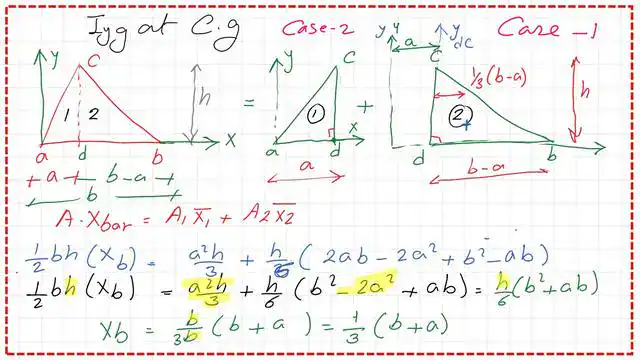 Iyg at C.g Case-2 Case-1
y y y y
a dc
C C C
1/3(b-a)
h = + h
1 2 1 2
a d b x a d x d b
a b-a a b-a
b
A·Xbar = A1 X1 + A2 X2
1/2 bh (Xb) = a²h/3 + h/6 (2ab - 2a² + b² - ab)
1/2 bh (Xb) = a²h/3 + h/6 (b² - 2a² + ab) = h/6 (b² + ab)
Xb = b/3b (b + a) = 1/3 (b + a)